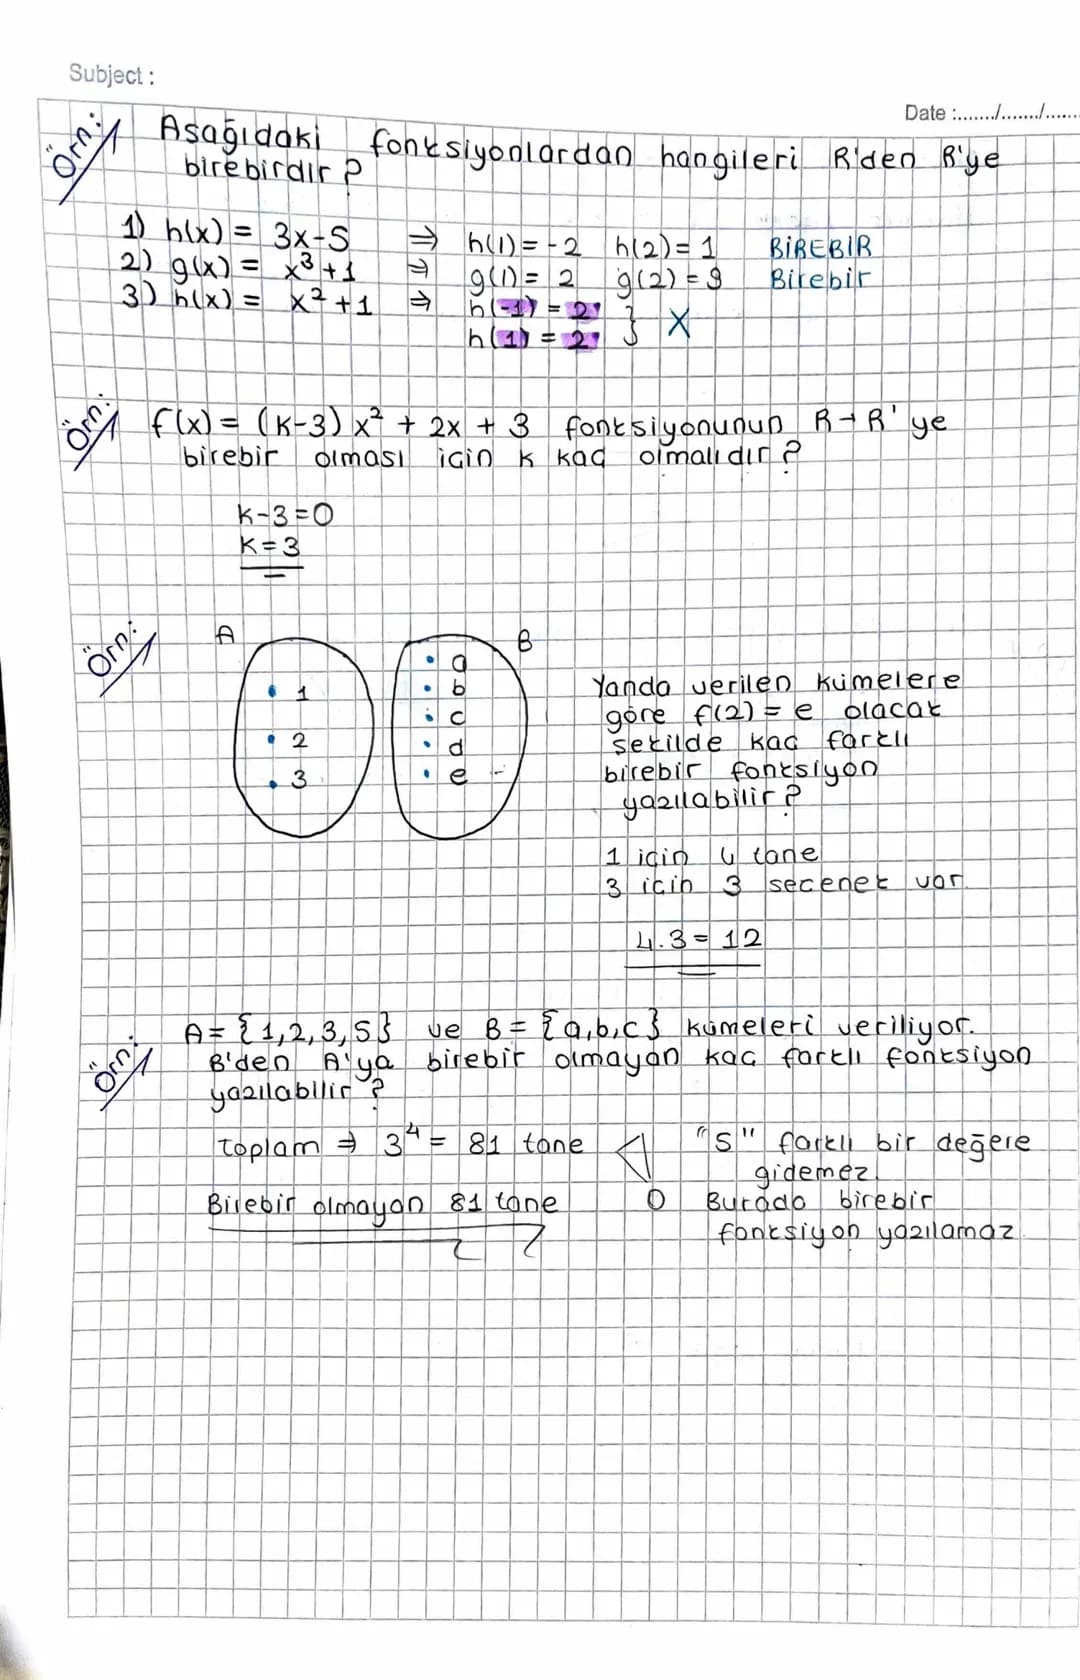 Subject :
Date :......./......./.......
Örn:
Asağıdaki fonksiyonlardan hangileri R'den R'ye
birebirdir ?
1) h(x) = 3x-5 ⇒ h(1) = -2 h(2) = 1 BİREBİR
2) g(x) = x³+1 ⇒ g(1) = 2 g(2) = 9 Birebir
3) h(x) = x²+1 ⇒ h(-1) = 2
h(1) = 2 } X
Örn:
f(x) = (k-3) x² + 2x + 3 fonksiyonunun R→R' ye
birebir olması için k kaç olmalıdır ?
k-3=0
k=3
Örn:
A
B
1
2
3
a
b
c
d
e
Yanda verilen kümelere
göre f(2) = e olacak
sekilde kaç farklı
birebir fonksiyon
yazılabilir ?
1 için 4 tane
3 icin 3 secenek var.
4.3 = 12
Örn:
A = {1,2,3,5} ve B = {a,b,c} kümeleri veriliyor.
B'den A'ya birebir olmayan kaç farklı fonksiyon
yazılabilir ?
Toplam ⇒ 3⁴ = 81 tane
Birebir olmayan 81 tane
"5" farklı bir değere
gidemez.
0 Burada birebir
fonksiyon yazılamaz.